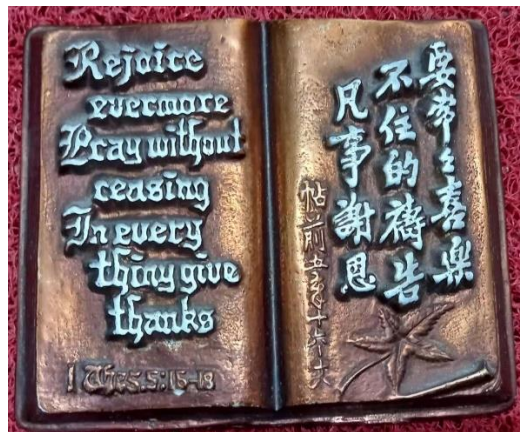 Rejoice
evermore
Pray without
ceasing
In every
thing give
thanks
I Thes.5:16-18
要常々喜樂
不住的禱告
凡事謝恩
帖前五章十六文